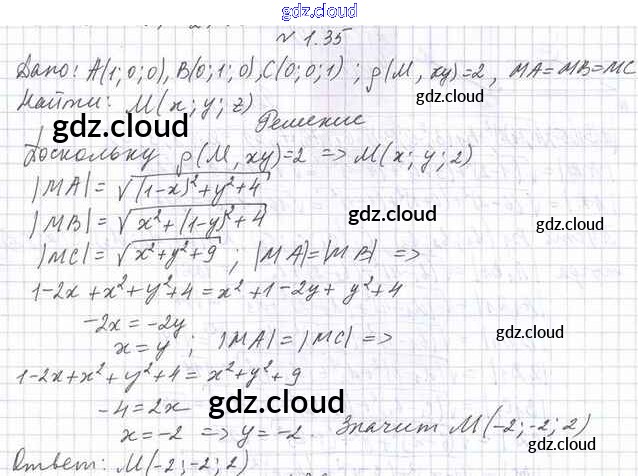 gdz.cloud
№ 1.35
Дано: A(1;0;0), B(0;1;0), C(0;0;1) ; ρ(M, xy)=2, MA=MB=MC
gdz.cloud
Найти: M(x;y;z)
gdz.cloud
Решение
Поскольку ρ(M, xy)=2 => M(x;y;2)
gdz.cloud
|MA| = √((1-x)²+y²+4)
|MB| = √(x²+(1-y)²+4)
gdz.cloud
|MC| = √(x²+y²+9) ; |MA|=|MB| =>
gdz.cloud
1-2x+x²+y²+4 = x²+1-2y+y²+4
-2x=-2y
x=y ; |MA|=|MC| =>
gdz.cloud
1-2x+x²+y²+4 = x²+y²+9
-4=2x
gdz.cloud
x=-2 => y=-2. Значит M(-2;-2;2)
gdz.cloud
Ответ: M(-2;-2;2)